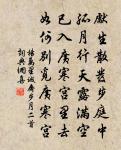 獻生散策步庭中
孤月行天露滿空
已入廣寒宮裏去
如何別覓廣寒宮
楊萬里誠齋步月二首
詞典網書